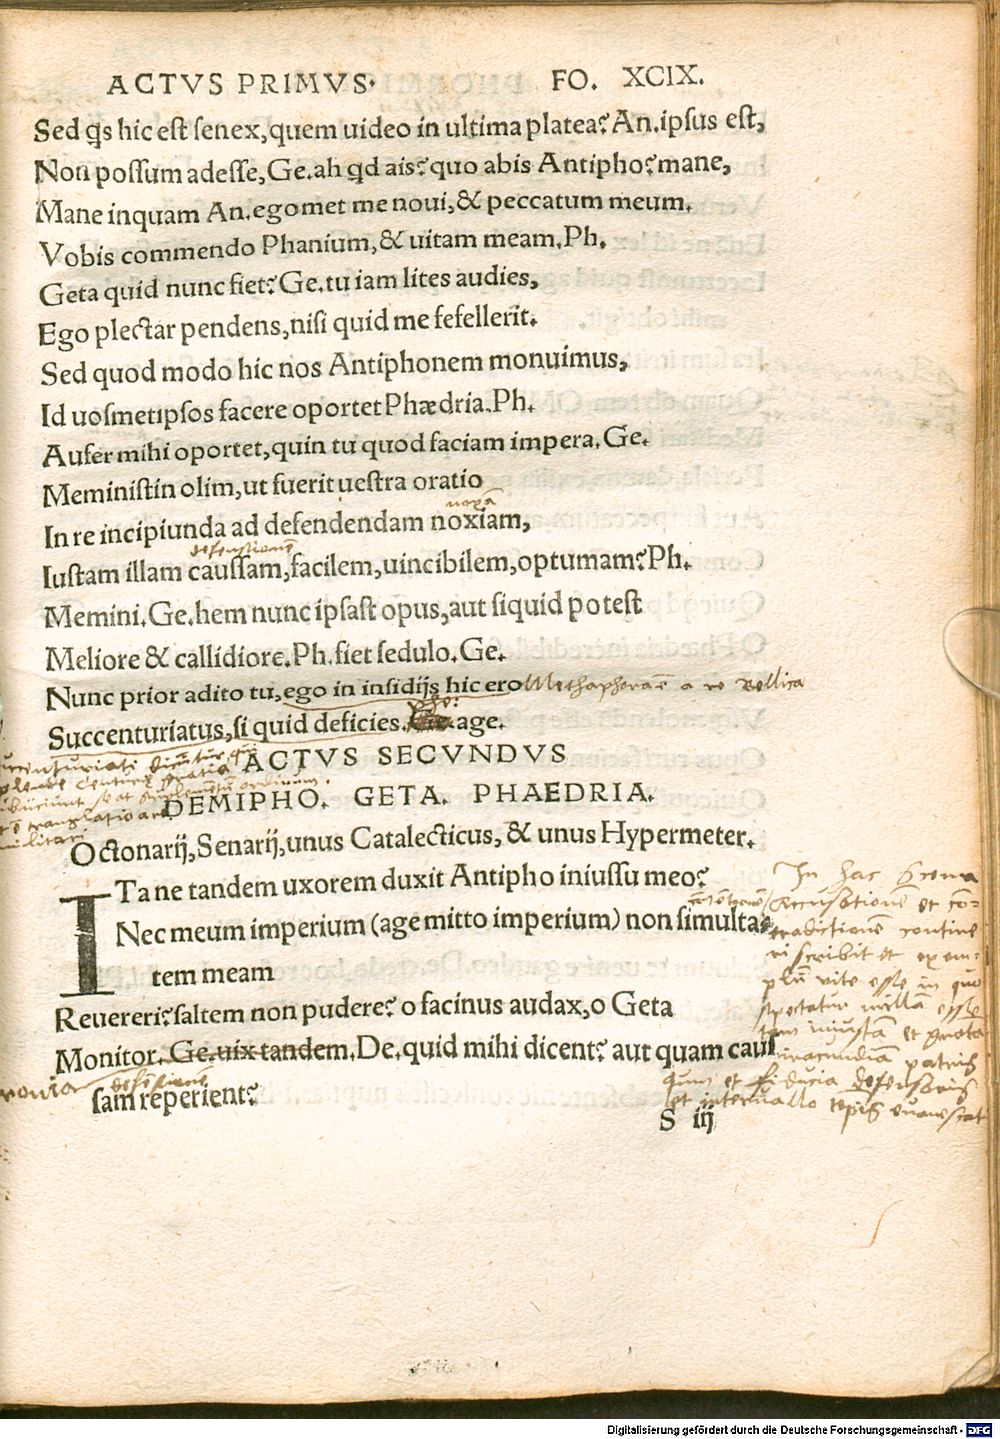 ACTVS PRIMVS. FO. XCIX.
Sed qs hic est senex, quem uideo in ultima platea? An. ipsus est,
Non possum adesse, Ge. ah qd ais? quo abis Antipho? mane,
Mane inquam An. egomet me noui, & peccatum meum.
Vobis commendo Phanium, & uitam meam. Ph.
Geta quid nunc fiet? Ge. tu iam lites audies,
Ego plectar pendens, nisi quid me fefellerit.
Sed quod modo hic nos Antiphonem monuimus,
Id uosmetipsos facere oportet Phædria. Ph.
Aufer mihi oportet, quin tu quod faciam impera. Ge.
Meministin olim, ut fuerit uestra oratio
noxã
In re incipiunda ad defendendam noxiam,
defensionẽ
Iustam illam caussam, facilem, uincibilem, optumam? Ph.
Memini. Ge. hem nunc ipsast opus, aut siquid potest
Meliore & callidiore. Ph. fiet sedulo. Ge.
Nunc prior adito tu, ego in insidijs hic ero Methaphora a re bellica
Pho:
Succenturiatus, si quid deficies. age.
ACTVS SECVNDVS
DEMIPHO. GETA. PHAEDRIA.
Octonarij, Senarij, unus Catalecticus, & unus Hypermeter.
ITa ne tandem uxorem duxit Antipho iniussu meo?
Nec meum imperium (age mitto imperium) non simulta-
tem meam
Reuereri? saltem non pudere? o facinus audax, o Geta
Monitor. Ge. uix tandem. De. quid mihi dicent? aut quam caus
defensionẽ
sam reperient?
In hac scena
accusationẽ et cõ-
tradictionẽ contine
ri scribit et exem-
plũ vite esse in quo
spectatur nullã esse
tam iniustã et
iracundiã patris
quin et fiducia defensoris
et interuallo tẽpis euanescat
S iij
Digitalisierung gefördert durch die Deutsche Forschungsgemeinschaft - DFG